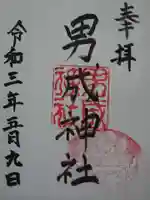 奉拝
男成神社
令和三年五月九日